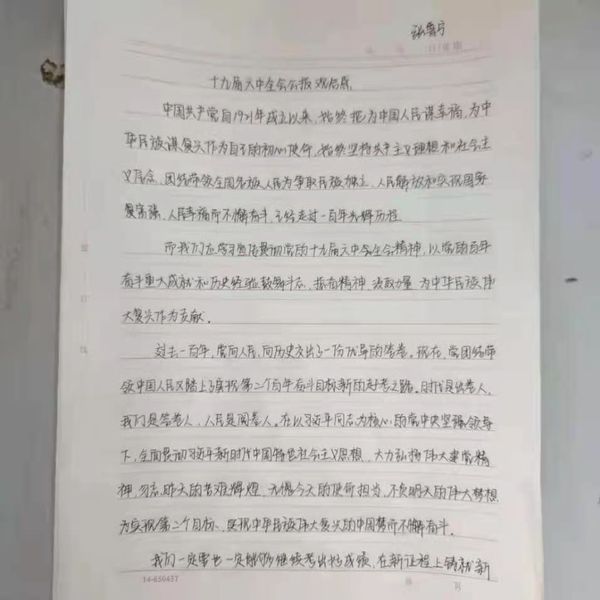 十九届六中全会公报观后感
中国共产党自1921年成立以来,始终把为中国人民谋幸福,为中
华民族谋复兴作为自己的初心使命,始终坚持共产主义理想和社会主
义信念,团结带领全国各族人民为争取民族独立、人民解放和实现国家
富强、人民幸福而不懈奋斗,已经走过一百年光辉历程。
而我们在学习宣传贯彻党的十九届六中全会精神,以党的百年
奋斗重大成就和历史经验鼓舞斗志,振奋精神,汲取力量,为中华民族伟
大复兴作为贡献。
过去一百年,党向人民、向历史交出了一份优异的答卷。现在,党团结带
领中国人民又踏上了实现第二个百年奋斗目标新的赶考之路。时代是出卷人,
我们是答卷人,人民是阅卷人。在以习近平同志为核心的党中央坚强领导
下,全面贯彻习近平新时代中国特色社会主义思想,大力弘扬伟大建党精
神,勿忘昨天的苦难辉煌,无愧今天的使命担当,不负明天的伟大梦想,
为实现第二个目标、实现中华民族伟大复兴的中国梦而不懈奋斗。
我们一定要也一定能够继续考出好成绩,在新征程上铸就新
14-650437